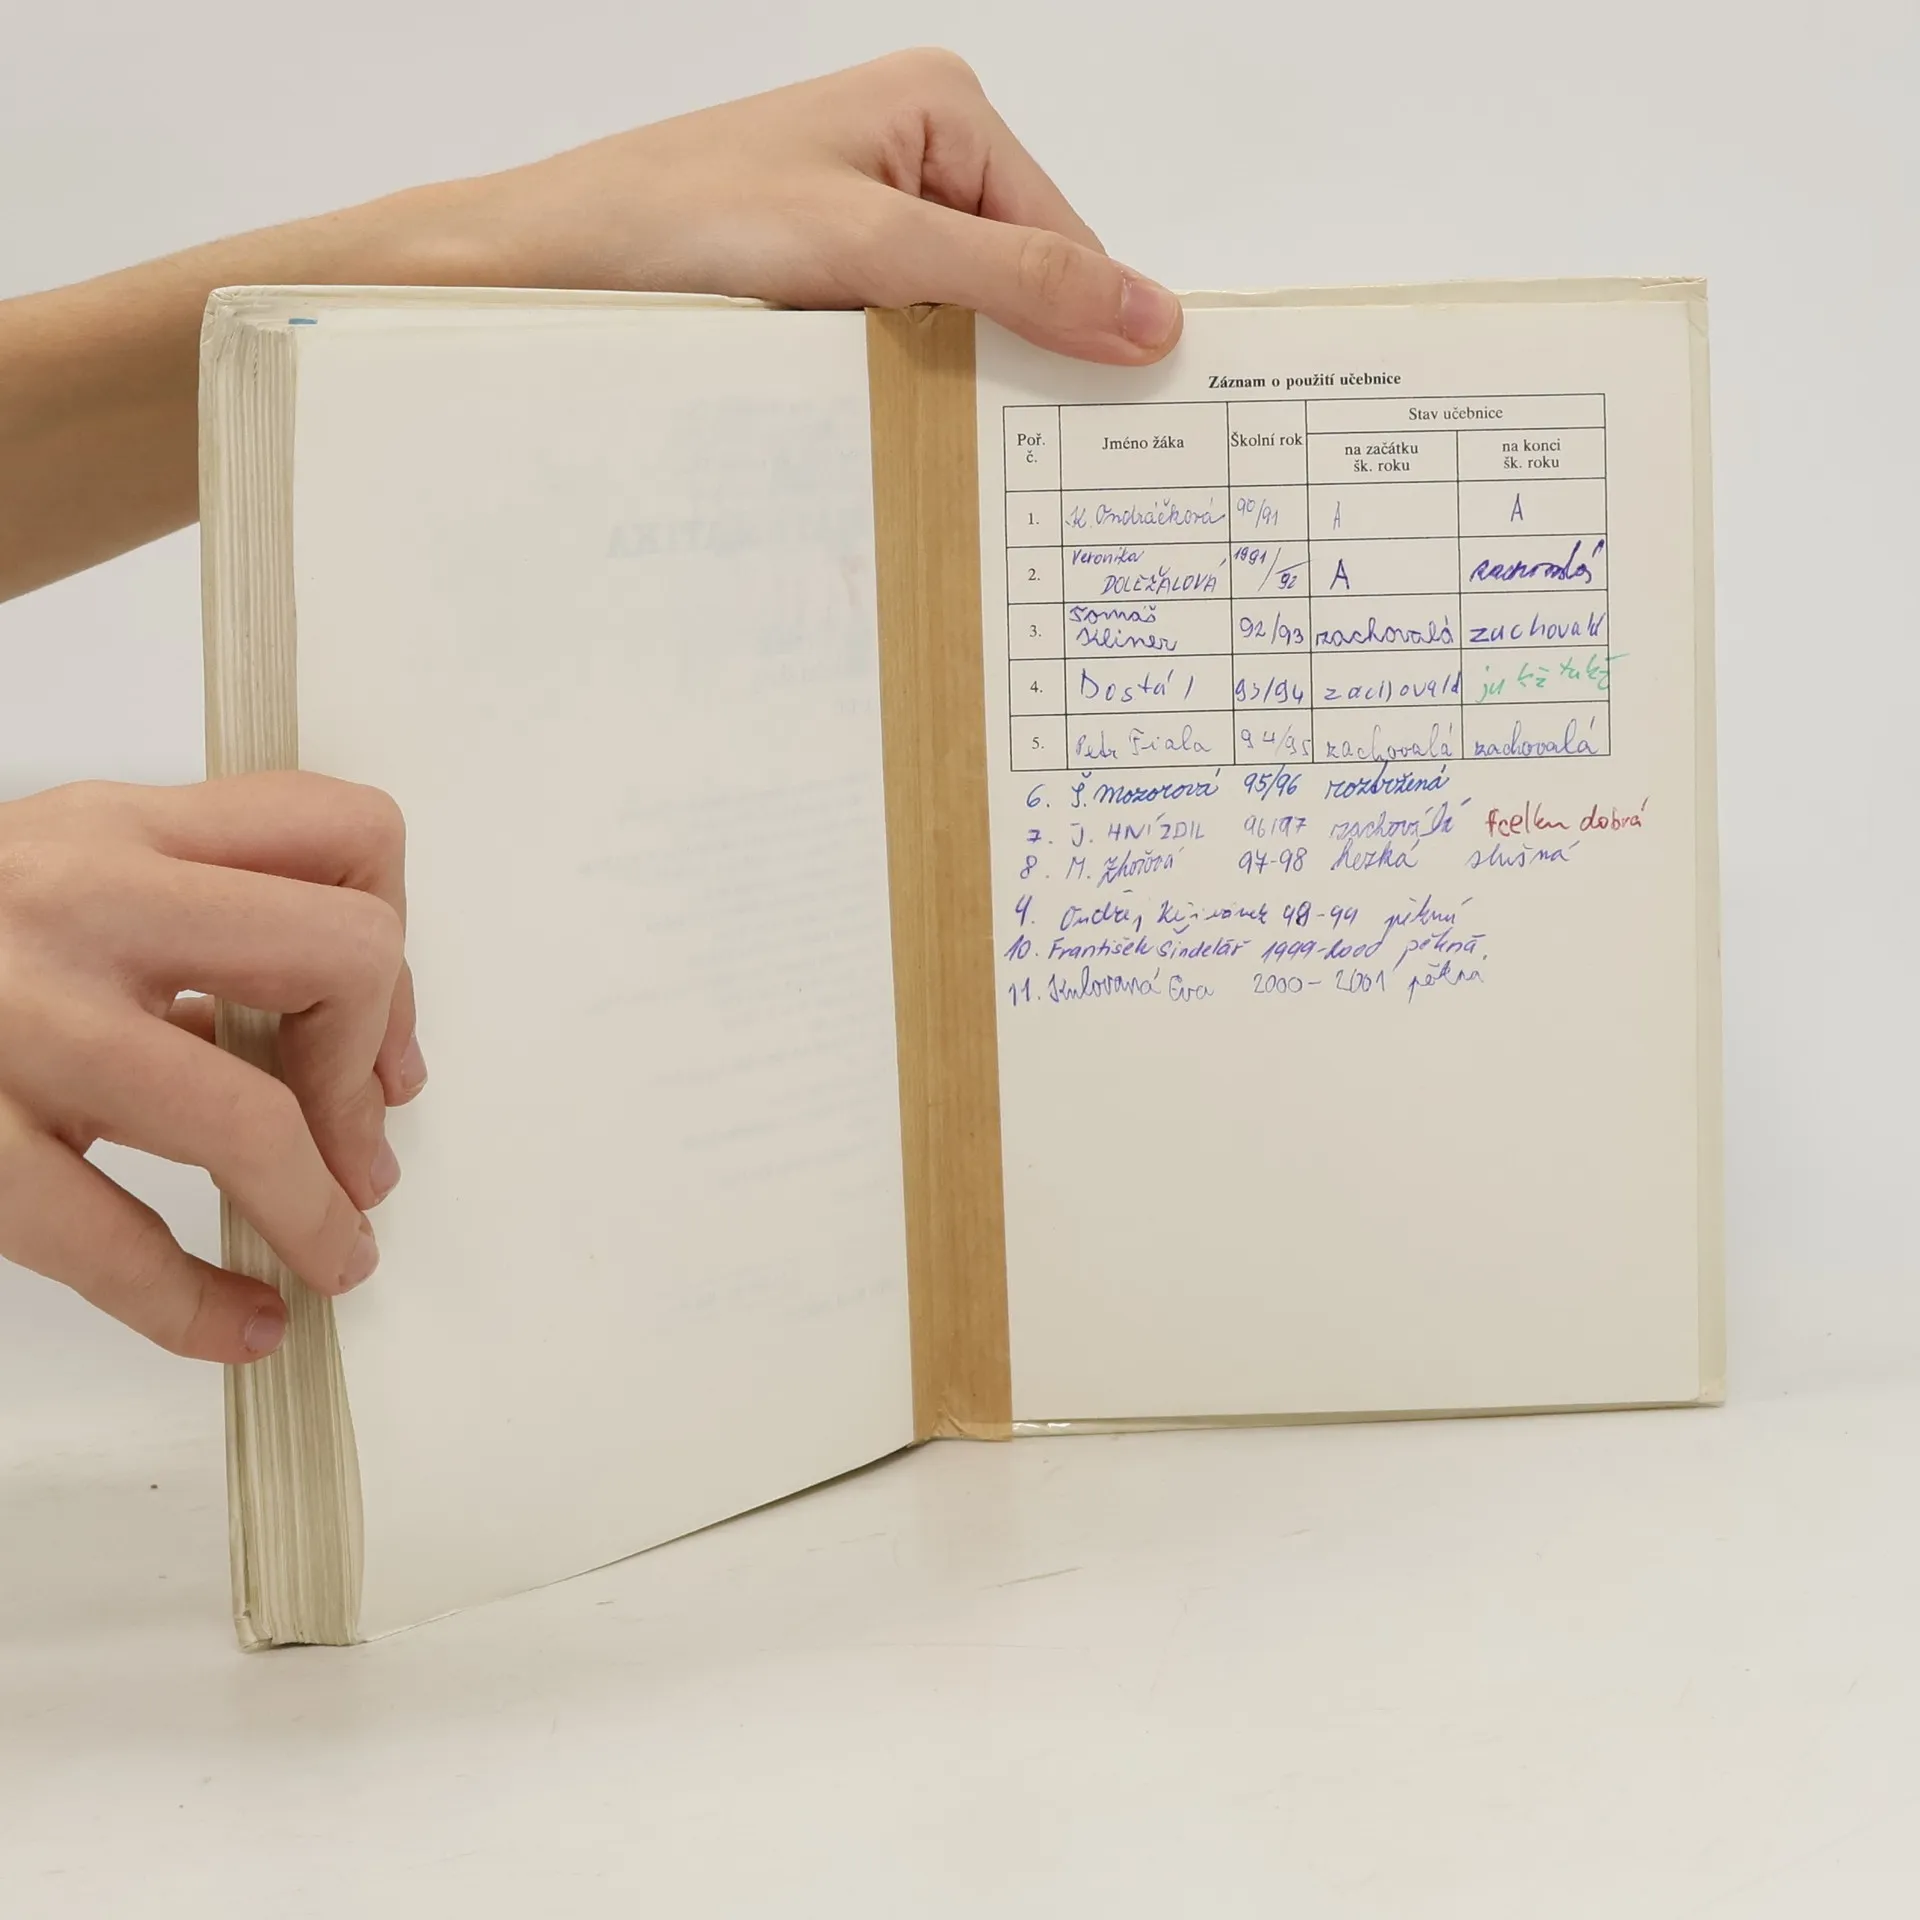 Záznam o použití učebnice
Poř. č. Jméno žáka Školní rok Stav učebnice
na začátku šk. roku na konci šk. roku
1. K. Ondráčková 90/91 A A
2. Veronika DOLEŽALOVÁ 1991/92 A zachovalá
3. Tomáš Kliner 92/93 zachovalá zachovalá
4. Dostál 93/94 zachovalá jakž takž
5. Petr Fiala 94/95 zachovalá zachovalá
6. Š. Mozorová 95/96
7. J. HNÍZDIL 96/97 zachovalá dobrá
8. M. 97-98 hezká slušná
9. Ondřej 98-99 pěkná
10. František Šindelář 1999-2000 pěkná.
11. Kulovaná Eva 2000-2001 pěkná